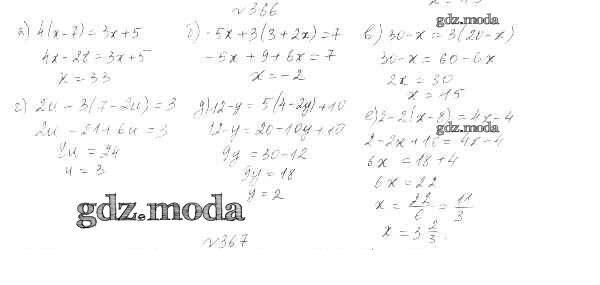 №366
а) 4(x-7)=3x+5
4x-28=3x+5
x=33
б) -5x+3(3+2x)=7
-5x+9+6x=7
x=-2
в) 30-x=3(20-x)
30-x=60-6x
2x=30
x=15
г) 2u-3(7-2u)=3
2u-21+6u=3
8u=24
u=3
д) 12-y=5(4-2y)+10
12-y=20-10y+10
9y=30-12
9y=18
y=2
е) 2-2(x-8)=4x-4
2-2x+16=4x-4
6x=18+4
6x=22
x=22/6=11/3
x=3 2/3
gdz.moda
gdz.moda
gdz.moda
№367